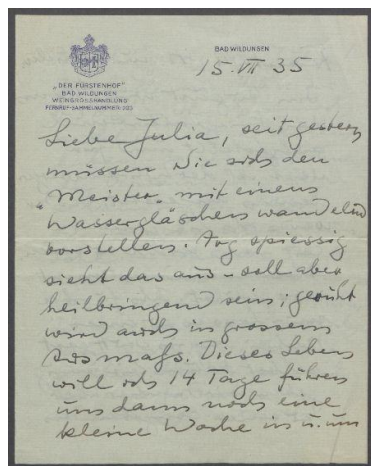 „DER FÜRSTENHOF"
BAD WILDUNGEN
WEINGROSSHANDLUNG
FERNRUF-SAMMELNUMMER
BAD WILDUNGEN
15. VII 35
Liebe Julia, seit gestern
müssen Sie sich den
„Meister" mit einem
Wassergläschen wandelnd
vorstellen. Arg spiessig
sieht das aus – soll aber
heilbringend sein; geruht
wird auch in grossem
Ausmaſs. Dieses Leben
will ich 14 Tage führen
um dann noch eine
kleine Woche in u. um